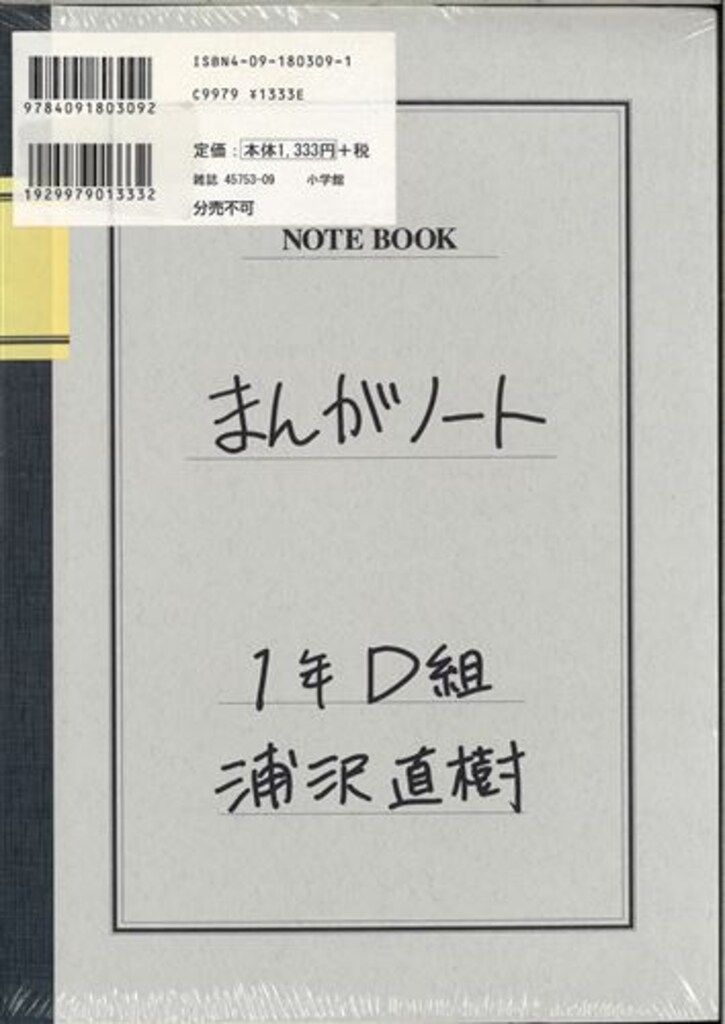 ISBN4-09-180309-1
C9979 ¥1333E
9784091803092
定価：本体1,333円＋税
雑誌 45753-09 小学館
1929979013332
分売不可
NOTE BOOK
まんがノート
1年D組
浦沢直樹